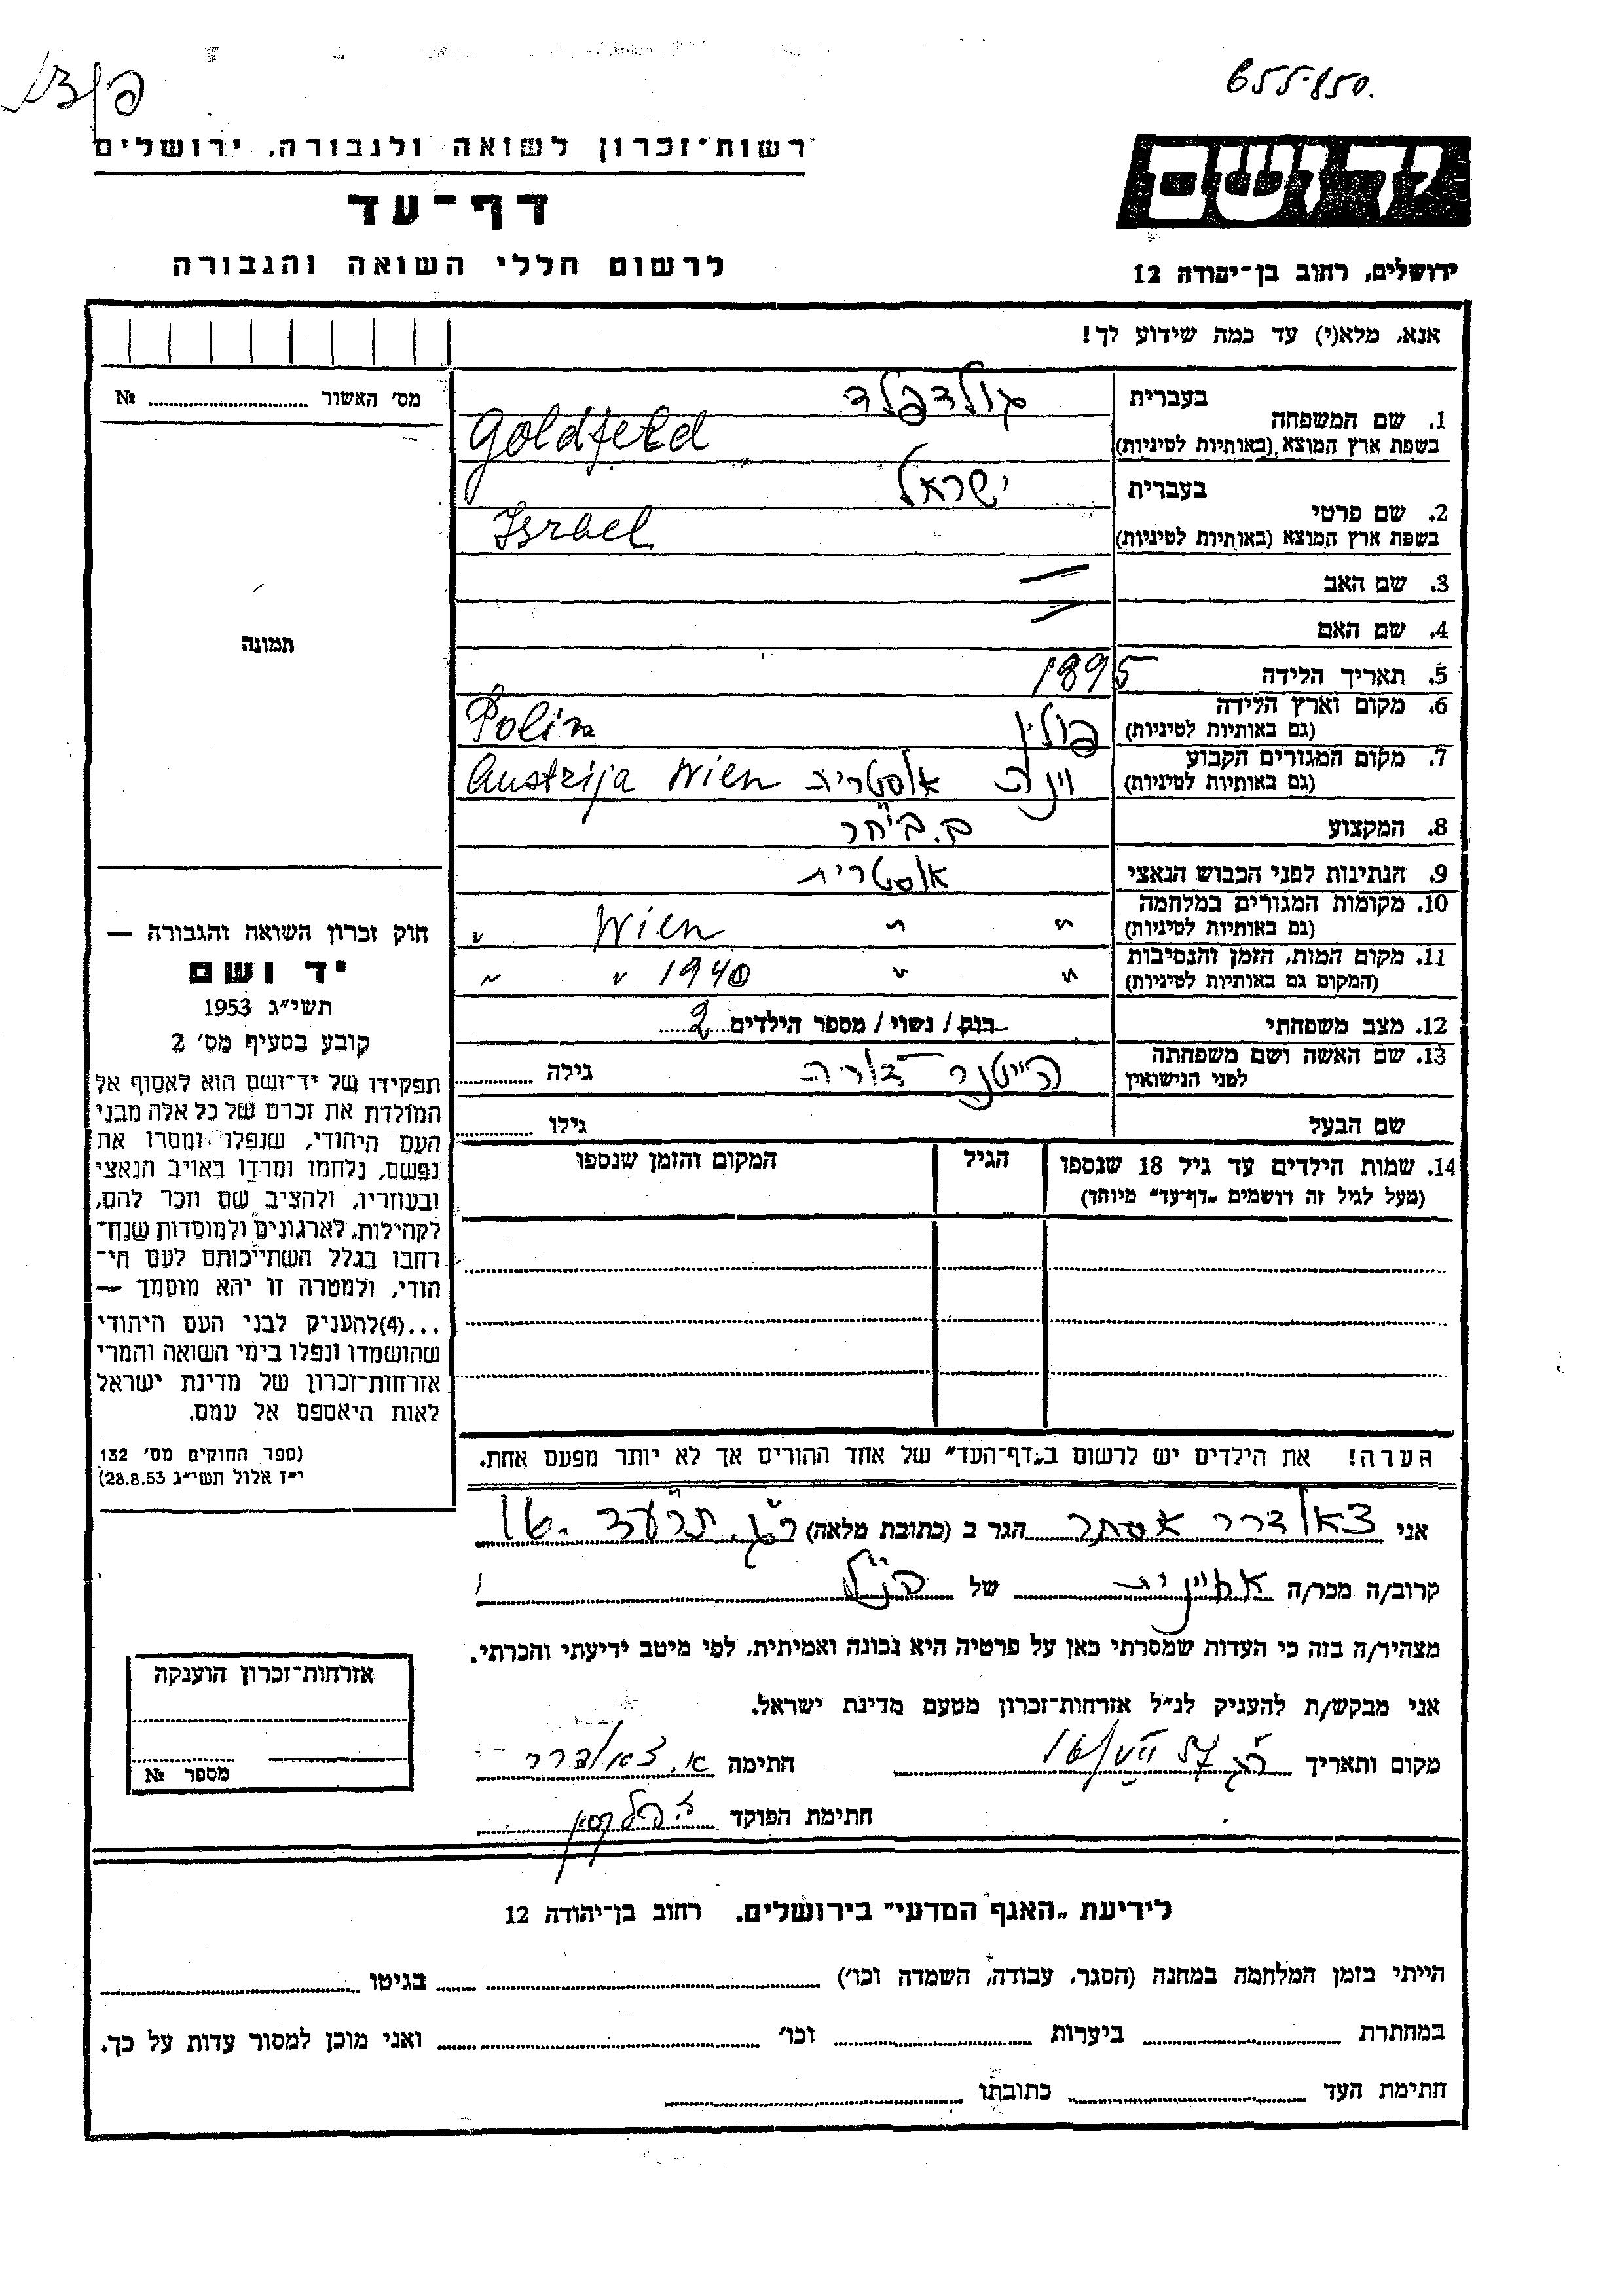 655-850.
רשות-זכרון לשואה ולגבורה, ירושלים
דף-עד
לרשום חללי השואה והגבורה
ידושם
ירושלים, רחוב בן-יהודה 12
אנא, מלא(י) עד כמה שידוע לך!
מס׳ האשור №
1. שם המשפחה
בעברית גולדפלד
בשפת ארץ המוצא (באותיות לטיניות) Goldfeld
2. שם פרטי
בעברית ישראל
בשפת ארץ המוצא (באותיות לטיניות) Israel
3. שם האב —
4. שם האם —
5. תאריך הלידה 1895
6. מקום וארץ הלידה פולין Polin
(גם באותיות לטיניות)
7. מקום המגורים הקבוע וינה אוסטריה Austrija Wien
(גם באותיות לטיניות)
8. המקצוע
9. הנתינות לפני הכבוש הנאצי אוסטרית
10. מקומות המגורים במלחמה " " Wien "
(גם באותיות לטיניות)
11. מקום המות, הזמן והנסיבות " " 1940 " "
(המקום גם באותיות לטיניות)
12. מצב משפחתי רווק / נשוי / מספר הילדים 2
13. שם האשה ושם משפחתה
לפני הנישואין גילה
שם הבעל גילו
14. שמות הילדים עד גיל 18 שנספו הגיל המקום והזמן שנספו
(מעל לגיל זה רושמים „דף-עד" מיוחד)
הערה! את הילדים יש לרשום ב„דף-העד" של אחד ההורים אך לא יותר מפעם אחת.
תמונה
חוק זכרון השואה והגבורה —
יד ושם
תשי"ג 1953
קובע בסעיף מס׳ 2
תפקידו של יד-ושם הוא לאסוף אל
המולדת את זכרם של כל אלה מבני
העם היהודי, שנפלו ומסרו את
נפשם, נלחמו ומרדו באויב הנאצי
ובעוזריו, ולהציב שם וזכר להם,
לקהילות, לארגונים ולמוסדות שנח-
רחבו בגלל השתייכותם לעם הי-
הודי, ולמטרה זו יהא מוסמך —
...(4)להעניק לבני העם היהודי
שהושמדו ונפלו בימי השואה והמרי
אזרחות-זכרון של מדינת ישראל
לאות היאספם אל עמם.
(ספר החוקים מס׳ 132
י"ז אלול תשי"ג 28.8.53)
אני אסתר הגר ב (כתובת מלאה) ר"ג, תרע"ד 16
קרוב/ה מכר/ה של הנ"ל
מצהיר/ה בזה כי העדות שמסרתי כאן על פרטיה היא נכונה ואמיתית, לפי מיטב ידיעתי והכרתי.
אני מבקש/ת להעניק לנ"ל אזרחות-זכרון מטעם מדינת ישראל.
מקום ותאריך חתימה
חתימת הפוקד
אזרחות-זכרון הוענקה
מספר №
לידיעת „האגף המדעי" בירושלים. רחוב בן-יהודה 12
הייתי בזמן המלחמה במחנה (הסגר, עבודה, השמדה וכו׳) בגיטו
במחתרת ביערות וכו׳ ואני מוכן למסור עדות על כך.
חתימת העד כתובתו